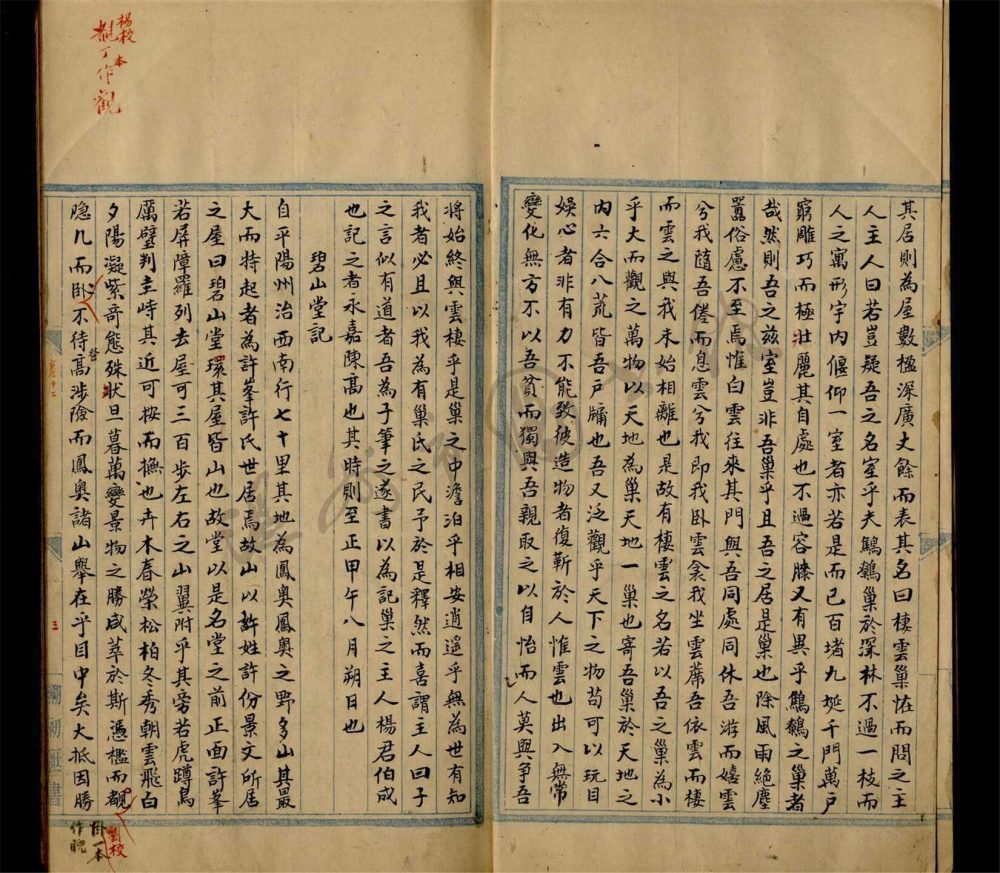 其居則為屋數楹深廣丈餘而表其名曰棲雲巢恠而問之主
人主人曰若豈疑吾之名室乎夫鷦鷯巢於深林不過一枝而
人之寓形宇内偃仰一室者亦若是而已百堵九筵千門萬戶
窮雕巧而極壯麗其自處也不過容膝又有異乎鷦鷯之巢者
哉然則吾之兹室豈非吾巢乎且吾之居是巢也除風雨絶塵
囂俗慮不至焉惟白雲往來其門與吾同處同休吾游而嬉雲
兮我隨吾倦而息雲兮我即我卧雲衾我坐雲席吾依雲而棲
而雲之與我未始相離也是故有棲雲之名若以吾之巢為小
乎大而觀之萬物以天地為巢天地一巢也寄吾巢於天地之
内六合八荒皆吾戶牖也吾又泛觀乎天下之物苟可以玩目
娯心者非有力不能致彼造物者復靳於人惟雲也出入無常
變化無方不以吾貧而獨與吾親取之以自怡而人莫與争吾
將始終與雲棲乎是巢之中澹泊乎相安逍遥乎無為世有知
我者必且以我為有巢氏之民予於是釋然而喜謂主人曰子
之言似有道者吾為子筆之遂書以為記巢之主人楊君伯成
也記之者永嘉陳髙也其時則至正甲午八月朔日也
碧山堂記
自平陽州治西南行七十里其地為鳳奥鳳奥之野多山其最
大而特起者為許峯許氏世居焉故山以許姓許份景文所居
之屋曰碧山堂環其屋皆山也故堂以是名堂之前正面許峯
若屏障羅列去屋可三百步左右之山翼附乎其旁若虎蹲鳥
厲壁判圭峙其近可按而撫也卉木春榮松柏冬秀朝雲飛白
夕陽凝紫奇態殊狀旦暮萬變景物之勝咸萃於斯憑檻而覩
隐几而卧不待髙涉險而鳳奥諸山舉在乎目中矣大抵因勝
楊校本
覩丁作觀
卧一本
作睨